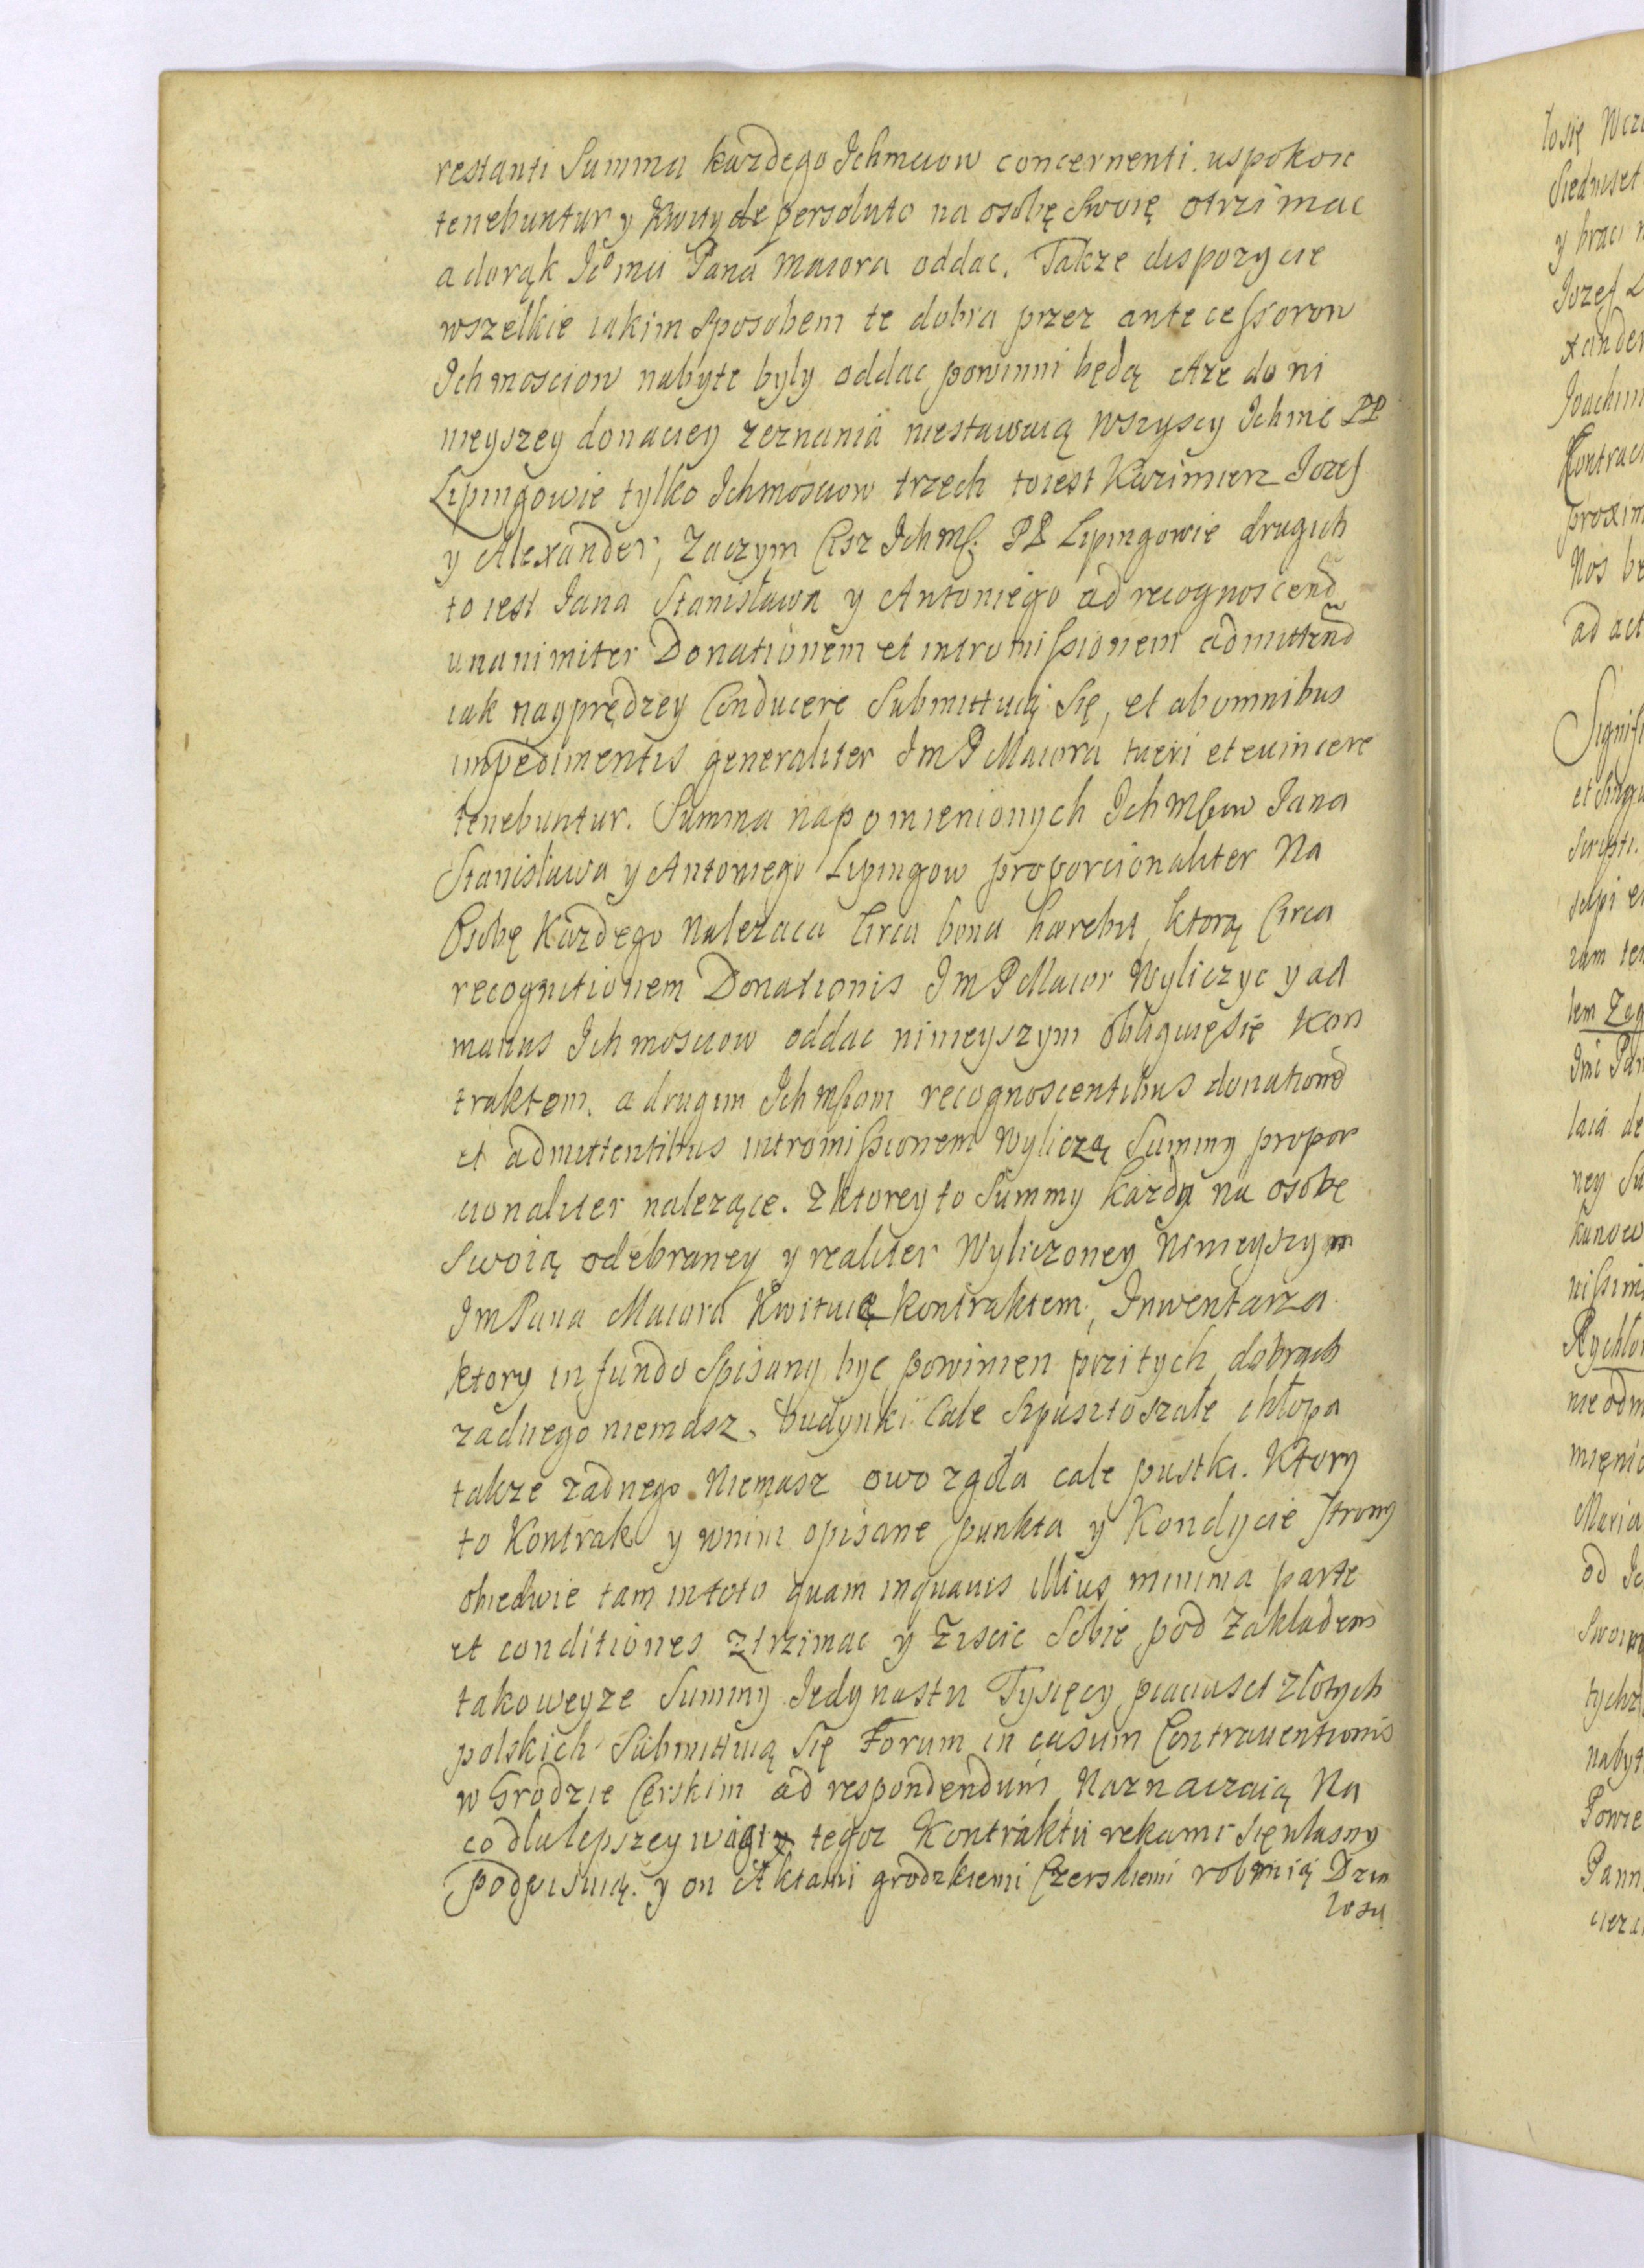 restanti Summa każdego Ichmciow concernenti uspokoic
tenebuntur y Kwity de persoluto na osobę Swoię otrzimac
a dorąk Icomu Pana Maiora oddac. Takze dispozycie
wszelkie iakim Sposobem te dobra przez antecessorow
Ichmosciow nabyte były oddac powinni będą Aze do ni
nieyszey donaciey zeznania niestawaią wszyscy Ichmc PP
Lipingowie tylko Ichmosciow trzech toiest Kazimierz Iozef
y Alexander, Zaczym Cisz Ichmß. PP Lipingowie drugich
to iest Iana Stanisława y Antoniego ad recognoscend
unanimiter Donationem et intromissionem admittend
iak nayprędzey Conducere Submittuią Się, et ab omnibus
impedimentis generaliter Im P Maiora tueri et euincere
tenebuntur. Summa napomienionych Ichmsciow Iana
Stanisława y Antoniego Lipingow proporcionaliter Na
Osobę Kazdego Nalezaca Circa bona hærebit, ktorą Circa
recognitionem Donationis Im P Maior Wyliczyc y ad
manus Ichmosciow oddac ninieyszym obliguię Się Kon
traktem. a drugim Ichmsciom recognoscentibus donationē
et admittentibus intromissionem Wyliczą Summy propor
cionaliter nalezące. Z ktorey to Summy kazdy na osobę
Swoią odebraney y realiter Wyliczoney Ninieyszym
Im Pana Maiora Kwituią kontraktem, Inwentarza
ktory in fundo Spisany byc powinien przi tych dobrach
zadnego niemasz. budynki Cale Spusztoszałe chłopa
takze zadnego Niemasz owo zgoła cale pustki. Ktory
to Kontrakt y wnim opisane punkta y Kondycie strony
obiedwie tam in toto quam in quauis illius minima parte
et conditiones ztrzimac y Ziscic Sobie pod Zakładem
takoweyze Summy Iedynastu Tysięcy piąciuset Złotych
polskich Submittuią Się Forum in casum Contrauentionis
w Grodzie Cerskim ad respondendum Naznaczaią Na
co dla lepszey wagi tegoz Kontraktu rekami Się własny
podpisuią. y on Aktami grodzkiemi Czerskiemi roboruią Dzia
łosię

ło się
Siedmset
y braci
Iozef
xander
Ioachim
Kontract
proxim
Nos
ad act
Signifi
et Singu
ram
lem
Imc Pan
laia de
ney Su
nissimi
Rychło
nie odm
mienio
Maria
od Ic
Swoim
tychz
nabyt
Powie
Pann